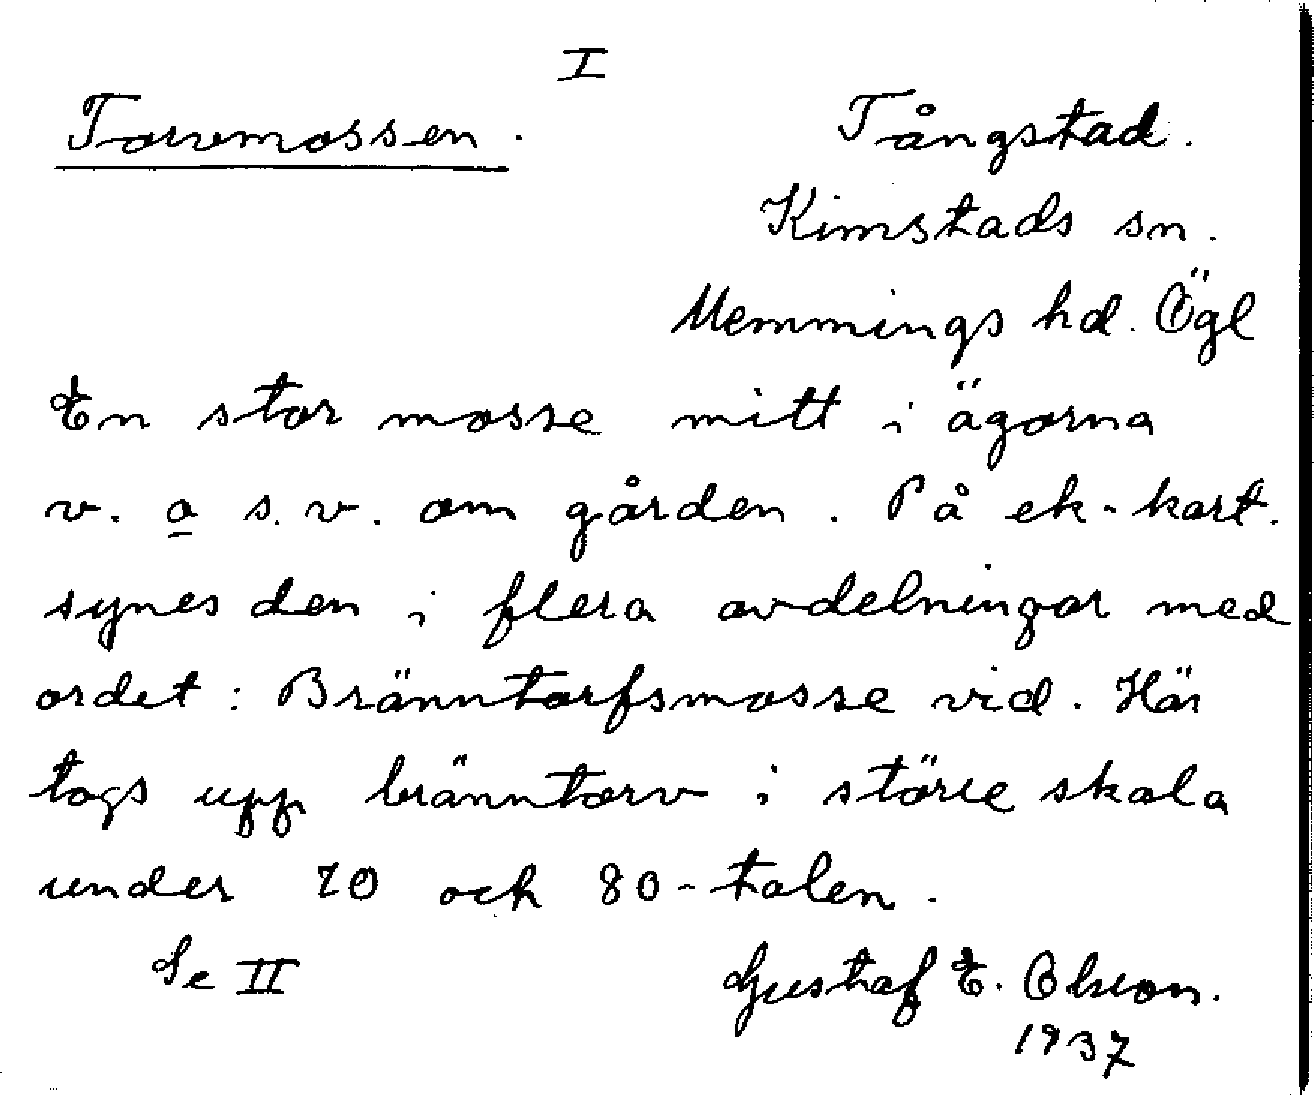 I
Torvmossen. Tångstad.
Kimstads sn.
Memmings hd. Ögl
En stor mosse mitt i ägorna
v. o s.v. om gården. På ek-kart.
synes den i flera avdelningar med
ordet: Bränntorfsmosse vid. Här
togs upp bränntorv i större skala
under 70 och 80-talen.
Se II Gustaf E. Olsson.
1937